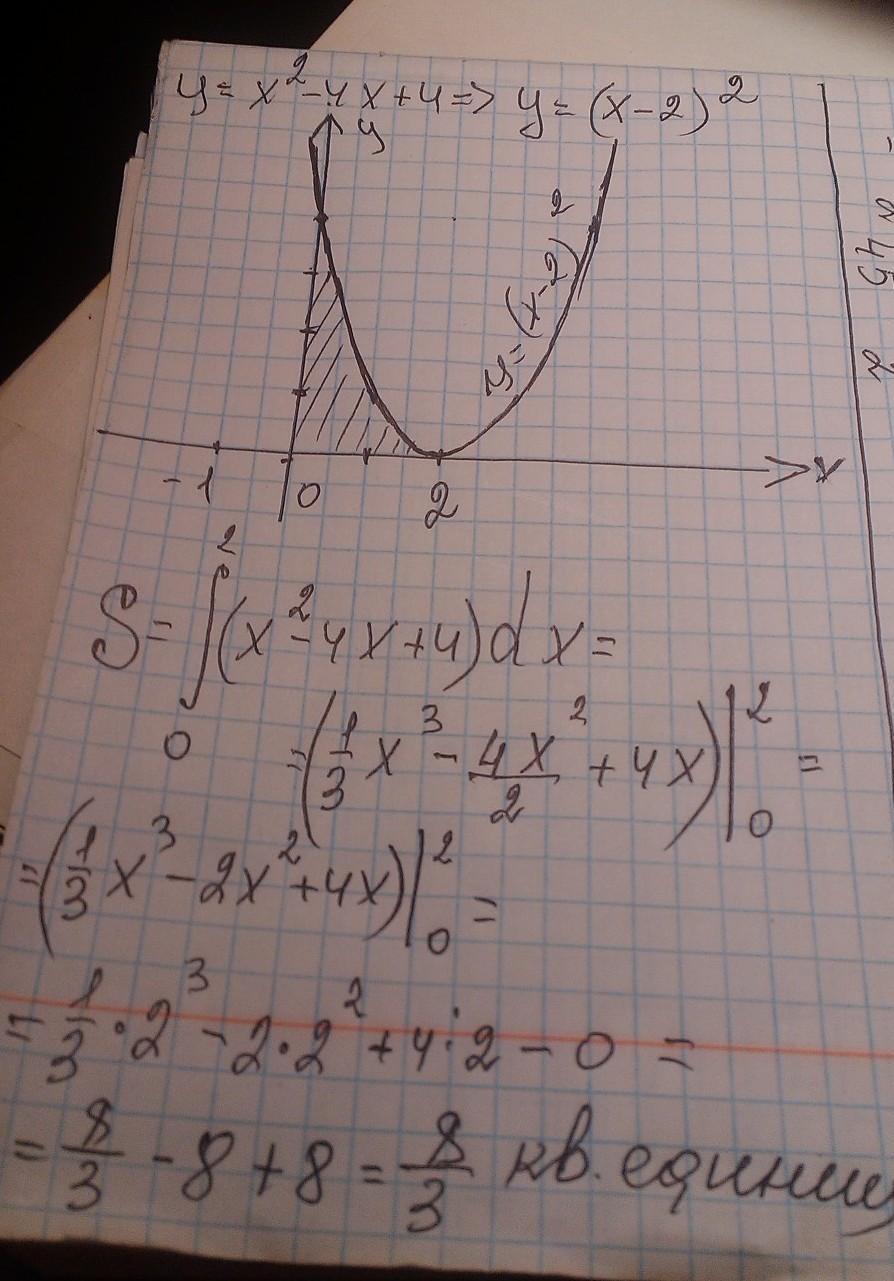 y = x² - 4x + 4 => y = (x - 2)²
y
y = (x - 2)²
-1 0 2 x
S = ∫₀² (x² - 4x + 4) dx =
= (1/3 x³ - 4x²/2 + 4x) |₀² =
= (1/3 x³ - 2x² + 4x) |₀² =
= 1/3 · 2³ - 2 · 2² + 4 · 2 - 0 =
= 8/3 - 8 + 8 = 8/3 кв. единиц